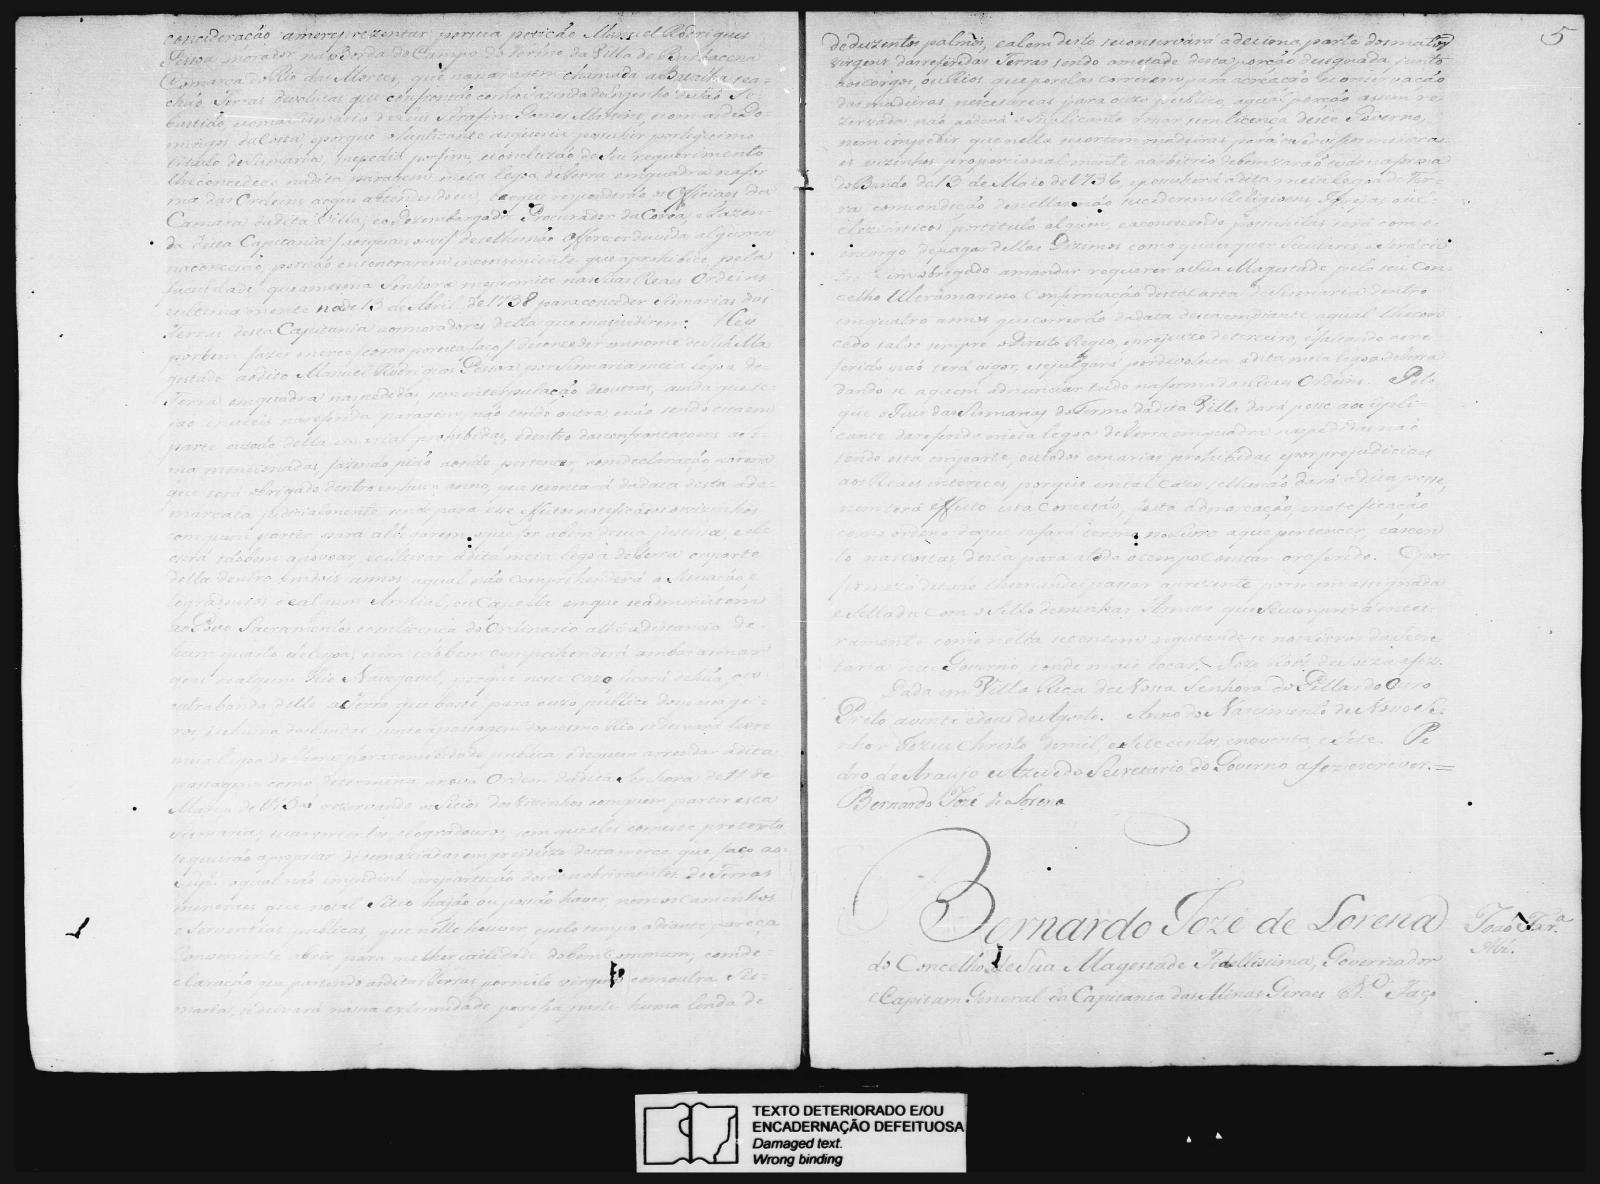 concideração amerepresentar por sua petição Manoel Rodrigues
Pessoa morador na Borda do Campo do Termo da Villa de Barbacena
Comarca do Rio das Mortes, que na paragem chamada a Batalha se a-
chão Terras devolutas que confrontão com a Fazenda do engenho de São Se-
bastião, e com a Sismaria de Luis Serafim Gomes Martins, e com a de Do-
mingos da Costa, e porque o Suplicante as queria possuhir por legitimo
titulo de Sismaria, me pedia por fim, e concluzão de seu requerimento
lhe concedece na dita paragem meia legoa de terra em quadra na for
ma das Ordens ao que attendendo eu, e ao que responderão os Officiaes da
Camara da dita Villa, e o Dezembargador Procurador da Coroa, e Fazen-
da desta Capitania (aos quais ouvi) de se lhe não offerecer duvida alguma
na concessão, por não encontrarem inconveniente que a prohibice, pela
faculdade, que a mesma Senhora me permite nas Suas Reaes Ordens
e ultima mente na de 13 de Abril de 1738 para conceder Sismarias das
Terras desta Capitania aos moradores della que mas pedirem: Hey
por bem fazer merce (como por esta faço) de conceder em nome de Sua Ma
gestade ao dito Manoel Rodrigues Pessoa por Sismaria meia legoa de
Terra em quadra nas pedidas, sem interpolação de outras, ainda que se-
jão inuteis na referida paragem, não tendo outra, e não sendo esta em
parte ou todo della em areas prohibidas, e dentro das confrontaçoens aci-
ma mencionadas, fazendo pião aonde pertencer, com declaração porem
que será obrigado dentro em hum anno, que se contará da data desta a de-
marcala judicialmente sendo para esse effeito notificados os vizinhos
com quem partir para allegarem o que for a bem de sua justiça, e elle
o será tãobem a povoar, e cultivar a dita meia legoa de terra ou parte
della dentro em dois annos, a qual não comprehenderá a situação e
logradouros de algum Arraial, ou Capella em que se administrem
ao Povo Sacramentos com licença do Ordinario athé a distancia de
hum quarto de legoa, nem tãobem comprehenderá ambas as mar
gens de algum Rio Navegavel, porque neste cazo ficará de hũa, e
outra banda delle a Terra que baste para o uzo publico dos passagei-
ros, e de huma das bandas junto á passagem do mesmo Rio se deixará livre
meia legoa de terra para comodidade publica e de quem arrendar a dita
passagem como determina a nova Ordem da dita Senhora de 11 de
Março de 1754 rezervando os Sitios dos Vizinhos com quem partir esta
Sismaria, suas vertentes, e logradouros, sem que elles com este pretexto
se queirão apropriar de demaziadas em prejuizo desta merce que faço ao
Supp.e a qual não impedirá a repartição dos descobrimentos de Terras
mineraes que no tal Sitio hajão ou possão haver, nem os caminhos
e Serventias publicas, que nelle houver, e pelo tempo adiante pareça
conveniente abrir para melhor utilidade do bem commum, com de-
claração que partindo as ditas Terras por mato virgem com outra Sis-
maria, se deixará na sua extremidade por esta parte huma lenda de
5
de duzentos palmos, e alem disto se conservará a decima parte dos matos
virgens das referidas Terras sendo a metade desta porção designada junto
aos corgos, ou Rios, que por elas correrem para a creação, e conservação
das madeiras necesarias para o uzo publico, a qual porção assim re
zervada não poderá o Suplicante roçar sem licença deste Governo,
nem impedir que nella se cortem madeiras para os Serviços minera
es vizinhos proporcional mente a arbitrio de bem varão tudo na forma
do Bando de 13 de Maio de 1736, e possuhirá a dita meia legoa de Ter-
ra com condição de nellas não sucederem Religioens, Igrejas, ou E-
cleziasticos por titulo algum, e acontecendo possuhilas será com o
encargo de pagar dellas Dizimos como quaes quer Seculares, e será ou
tro sim obrigado a mandar requerer a Sua Magestade pelo seu Con-
celho Ultramarino Confirmação desta Carta de Sismaria dentro
em quatro annos que correrão da data desta em diante a qual lhe con
cedo salvo sempre o Direito Regio, e prejuizo de terceiro, e faltando ao re
ferido não terá vigor, e se julgará por devoluta a dita meia legoa de terra
dando se a quem a denunciar tudo na forma das Reaes Ordens. Pelo
que o Juiz das Sismarias do Termo da dita Villa dará posse ao Supli-
cante da referida meia legoa de terra em quadra nas pedidas não
sendo esta em parte, ou todo em areas prohibidas e por prejudiciaes
aos Reaes intereces, porque em tal cazo se lhe não dará a dita posse,
nem terá effeito esta Concessão, feita a demarcação, e notificação
como ordeno de que se fará termo no Livro a que pertencer, e assen
to nas costas desta para a todo o tempo constar o referido. E por
firmeza de tudo lhe mandei passar a prezente por mim assignada
e sellada com o Sello de minhas Armas que se cumprirá intei-
ramente como nella se contem registando-se nos Livros da Secre
taria deste Governo e onde mais tocar. Joze Roiz de Souza a fez.
Dada em Villa Rica de Nossa Senhora do Pillar do Ouro
Preto a vinte e dous de Agosto. Anno do Nascimento de Nosso Se-
nhor Jezus Christo de mil, e Sete centos, e noventa, e Sete. Pe
dro de Araujo e Azevedo Secretario do Governo a fez escrever.=
Bernardo Jozé de Lorena
Bernardo Jozé de Lorena
do Concelho de Sua Magestade Fidellissima, Governador
e Capitam General da Capitania das Minas Geraes &.a Faço
João Fer.a
TEXTO DETERIORADO E/OU
ENCADERNAÇÃO DEFEITUOSA
Damaged text.
Wrong binding